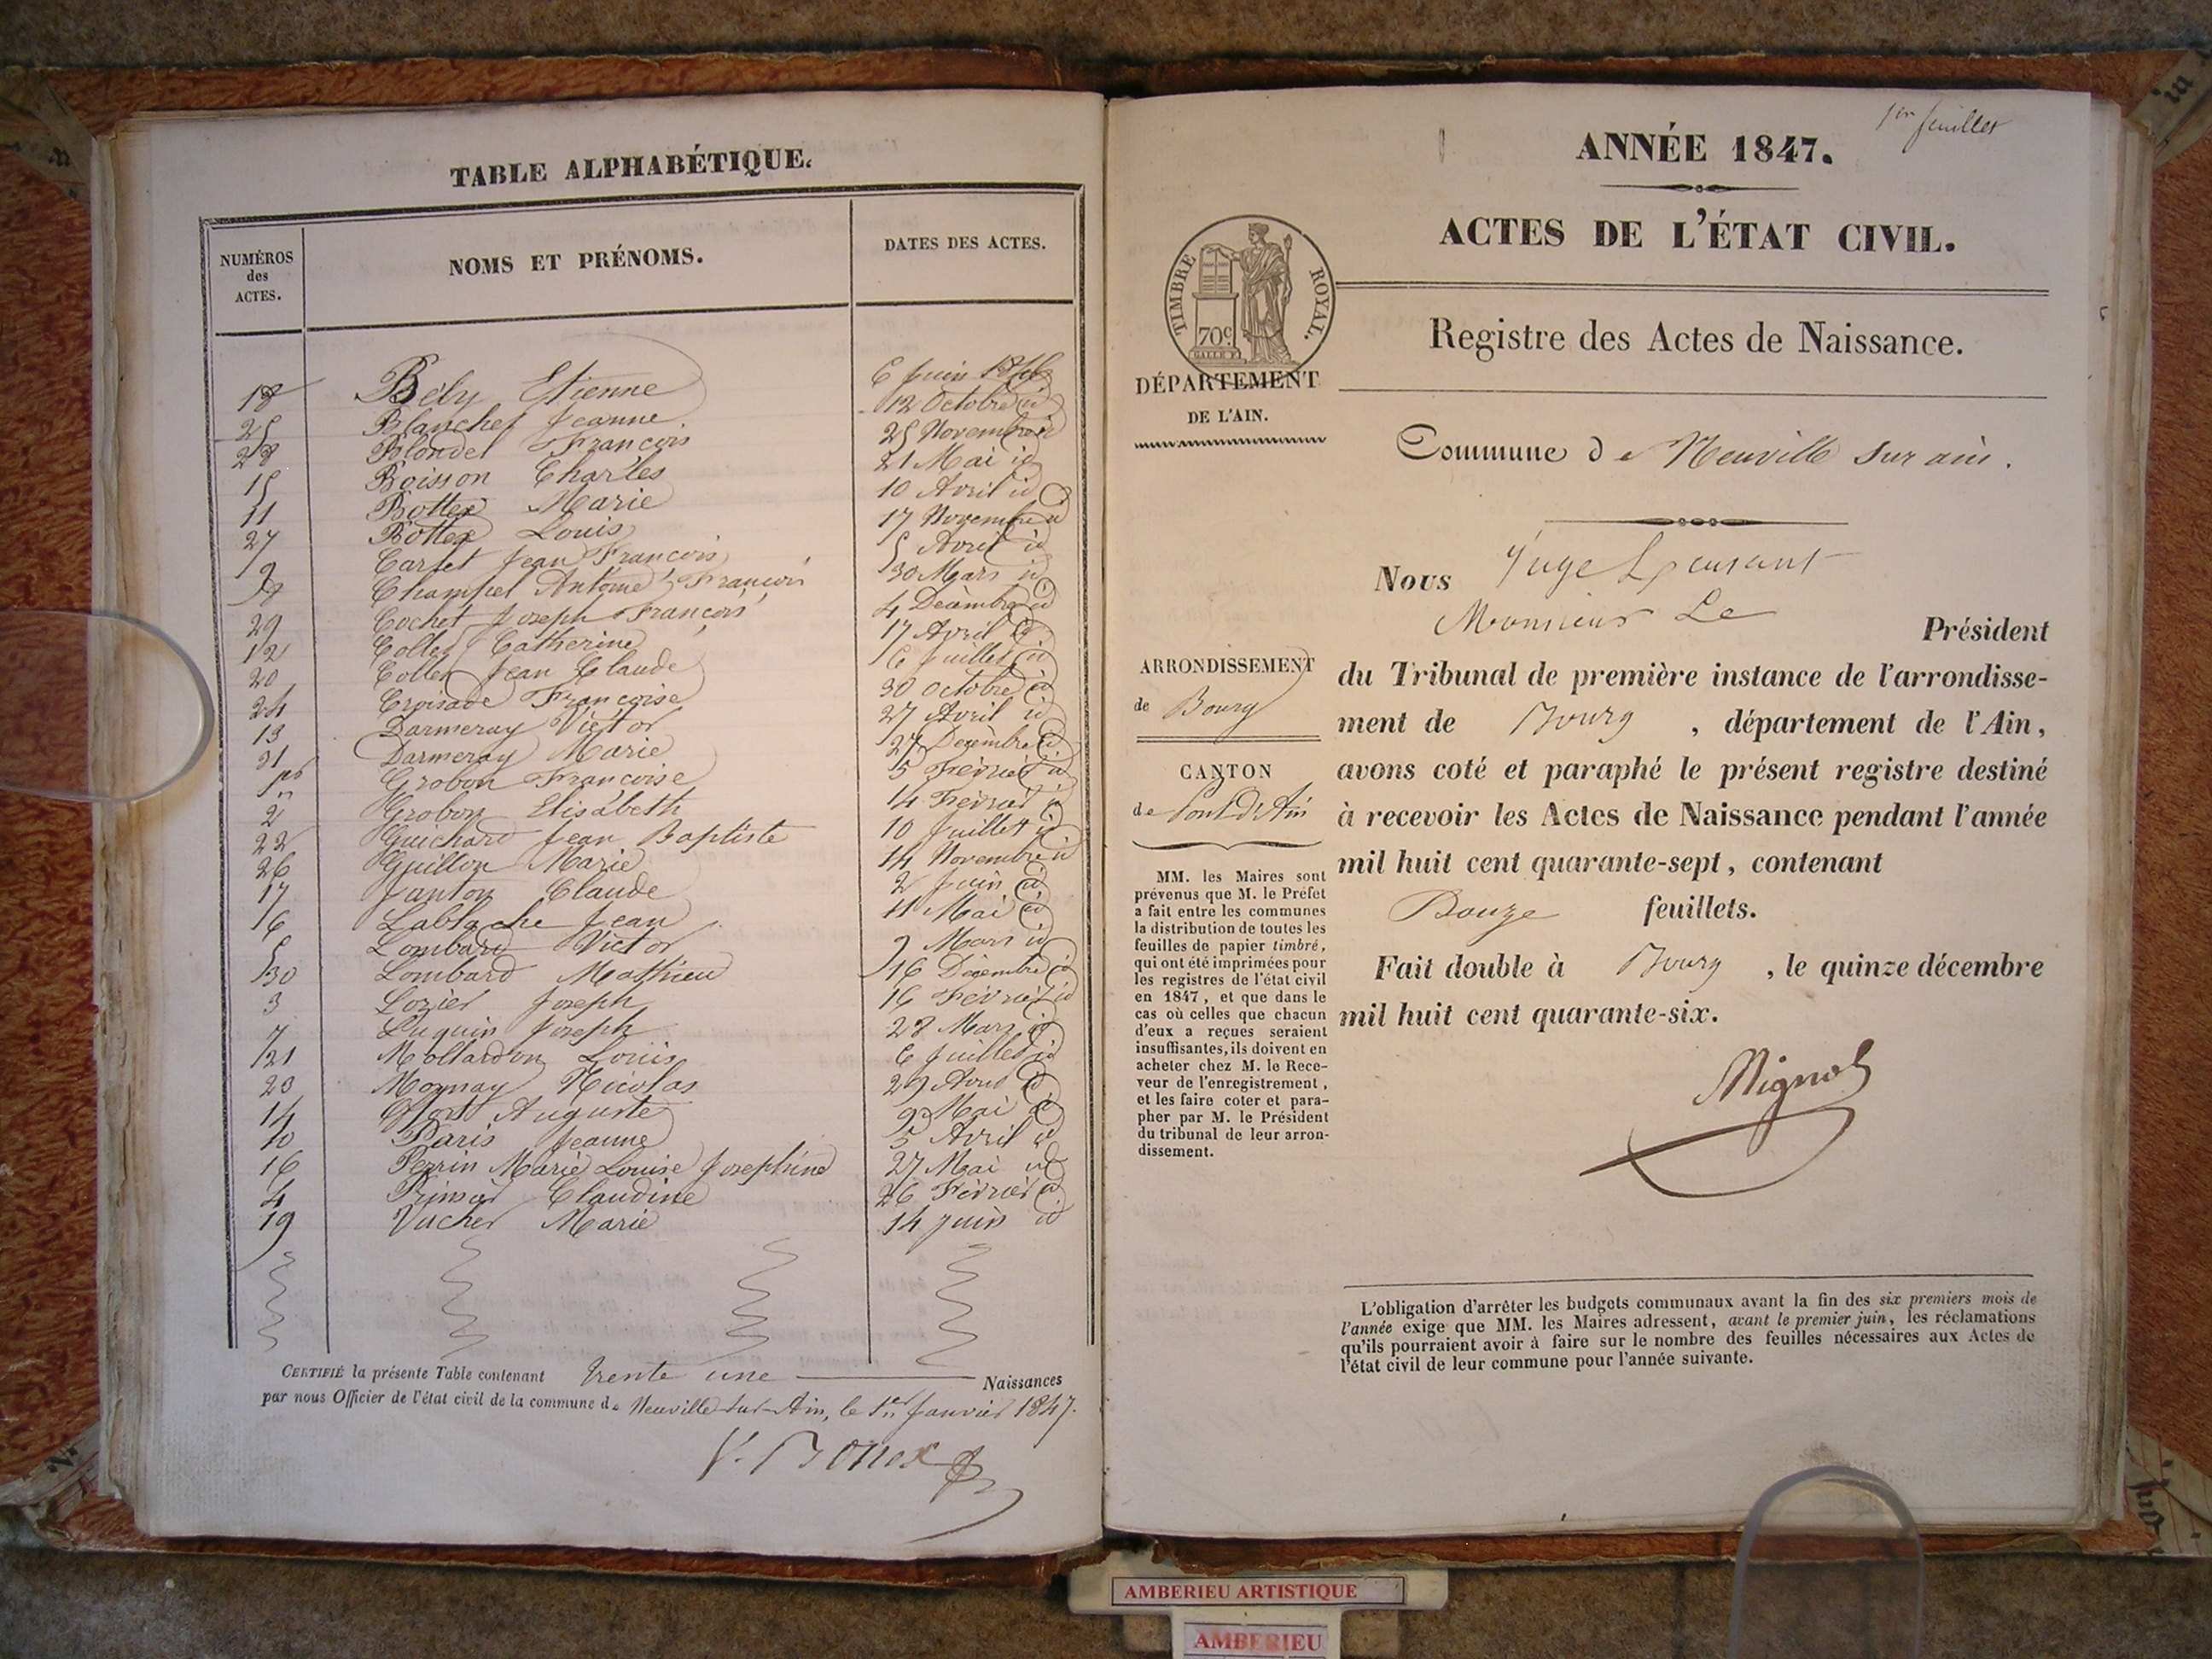 TABLE ALPHABÉTIQUE.
NUMÉROS des ACTES. NOMS ET PRÉNOMS. DATES DES ACTES.
18 Bély Etienne 6 Juin 1846
25 Blanchet Jeanne 12 Octobre id
28 Blondel François 25 Novembre id
15 Boisson Charles 21 Mai id
11 Bottex Marie 10 Avril id
27 Bottex Louis 17 Novembre id
9 Carlet Jean François 5 Avril id
8 Champel Antoine François 30 Mars id
29 Cochet Joseph François 4 Decembre id
12 Collet Catherine 17 Avril id
20 Collet Jean Claude 6 Juillet id
24 Croisade Françoise 30 Octobre id
13 Darmeray Victor 27 Avril id
31 Darmeray Marie 27 Decembre id
1er Grobon Françoise 5 Fevrier id
2 Grobon Elisabeth 14 Fevrier id
22 Guichard Jean Baptiste 10 Juillet id
26 Guillon Marie 14 Novembre id
17 Janton Claude 2 Juin id
16 Lablache Jean 11 Mai id
5 Lombard Victor Mars id
30 Lombard Mathieu 16 Décembre id
3 Lozier Joseph 16 Fevrier id
7 Luquin Joseph 28 Mars id
21 Mollardon Louis 6 Juillet id
23 Mornay Nicolas 29
14 Auguste Mai id
10 Paris Jeanne 5 Avril id
16 Perrin Marie Louise Josephine 27 Mai id
4 Claudine 26 Fevrier id
19 Vucher Marie 14 juin id
CERTIFIÉ la présente Table contenant trente une Naissances
par nous Officier de l'état civil de la commune de Neuville sur Ain, le 1er Janvier 1847.
V. Bottex
1er feuillet
ANNÉE 1847.
ACTES DE L'ÉTAT CIVIL.
TIMBRE ROYAL.
70c
Registre des Actes de Naissance.
DÉPARTEMENT
DE L'AIN.
Commune de Neuville sur ain.
Nous Juge
Monsieur Le Président
ARRONDISSEMENT
de Bourg
CANTON
de Pont d'Ain
MM. les Maires sont
prévenus que M. le Préfet
a fait entre les communes
la distribution de toutes les
feuilles de papier timbré,
qui ont été imprimées pour
les registres de l'état civil
en 1847, et que dans le
cas où celles que chacun
d'eux a reçues seraient
insuffisantes, ils doivent en
acheter chez M. le Rece-
veur de l'enregistrement,
et les faire coter et para-
pher par M. le Président
du tribunal de leur arron-
dissement.
du Tribunal de première instance de l'arrondisse-
ment de Bourg, département de l'Ain,
avons coté et paraphé le présent registre destiné
à recevoir les Actes de Naissance pendant l'année
mil huit cent quarante-sept, contenant
Douze feuillets.
Fait double à Bourg, le quinze décembre
mil huit cent quarante-six.
L'obligation d'arrêter les budgets communaux avant la fin des six premiers mois de
l'année exige que MM. les Maires adressent, avant le premier juin, les réclamations
qu'ils pourraient avoir à faire sur le nombre des feuilles nécessaires aux Actes de
l'état civil de leur commune pour l'année suivante.
AMBERIEU ARTISTIQUE
AMBERIEU